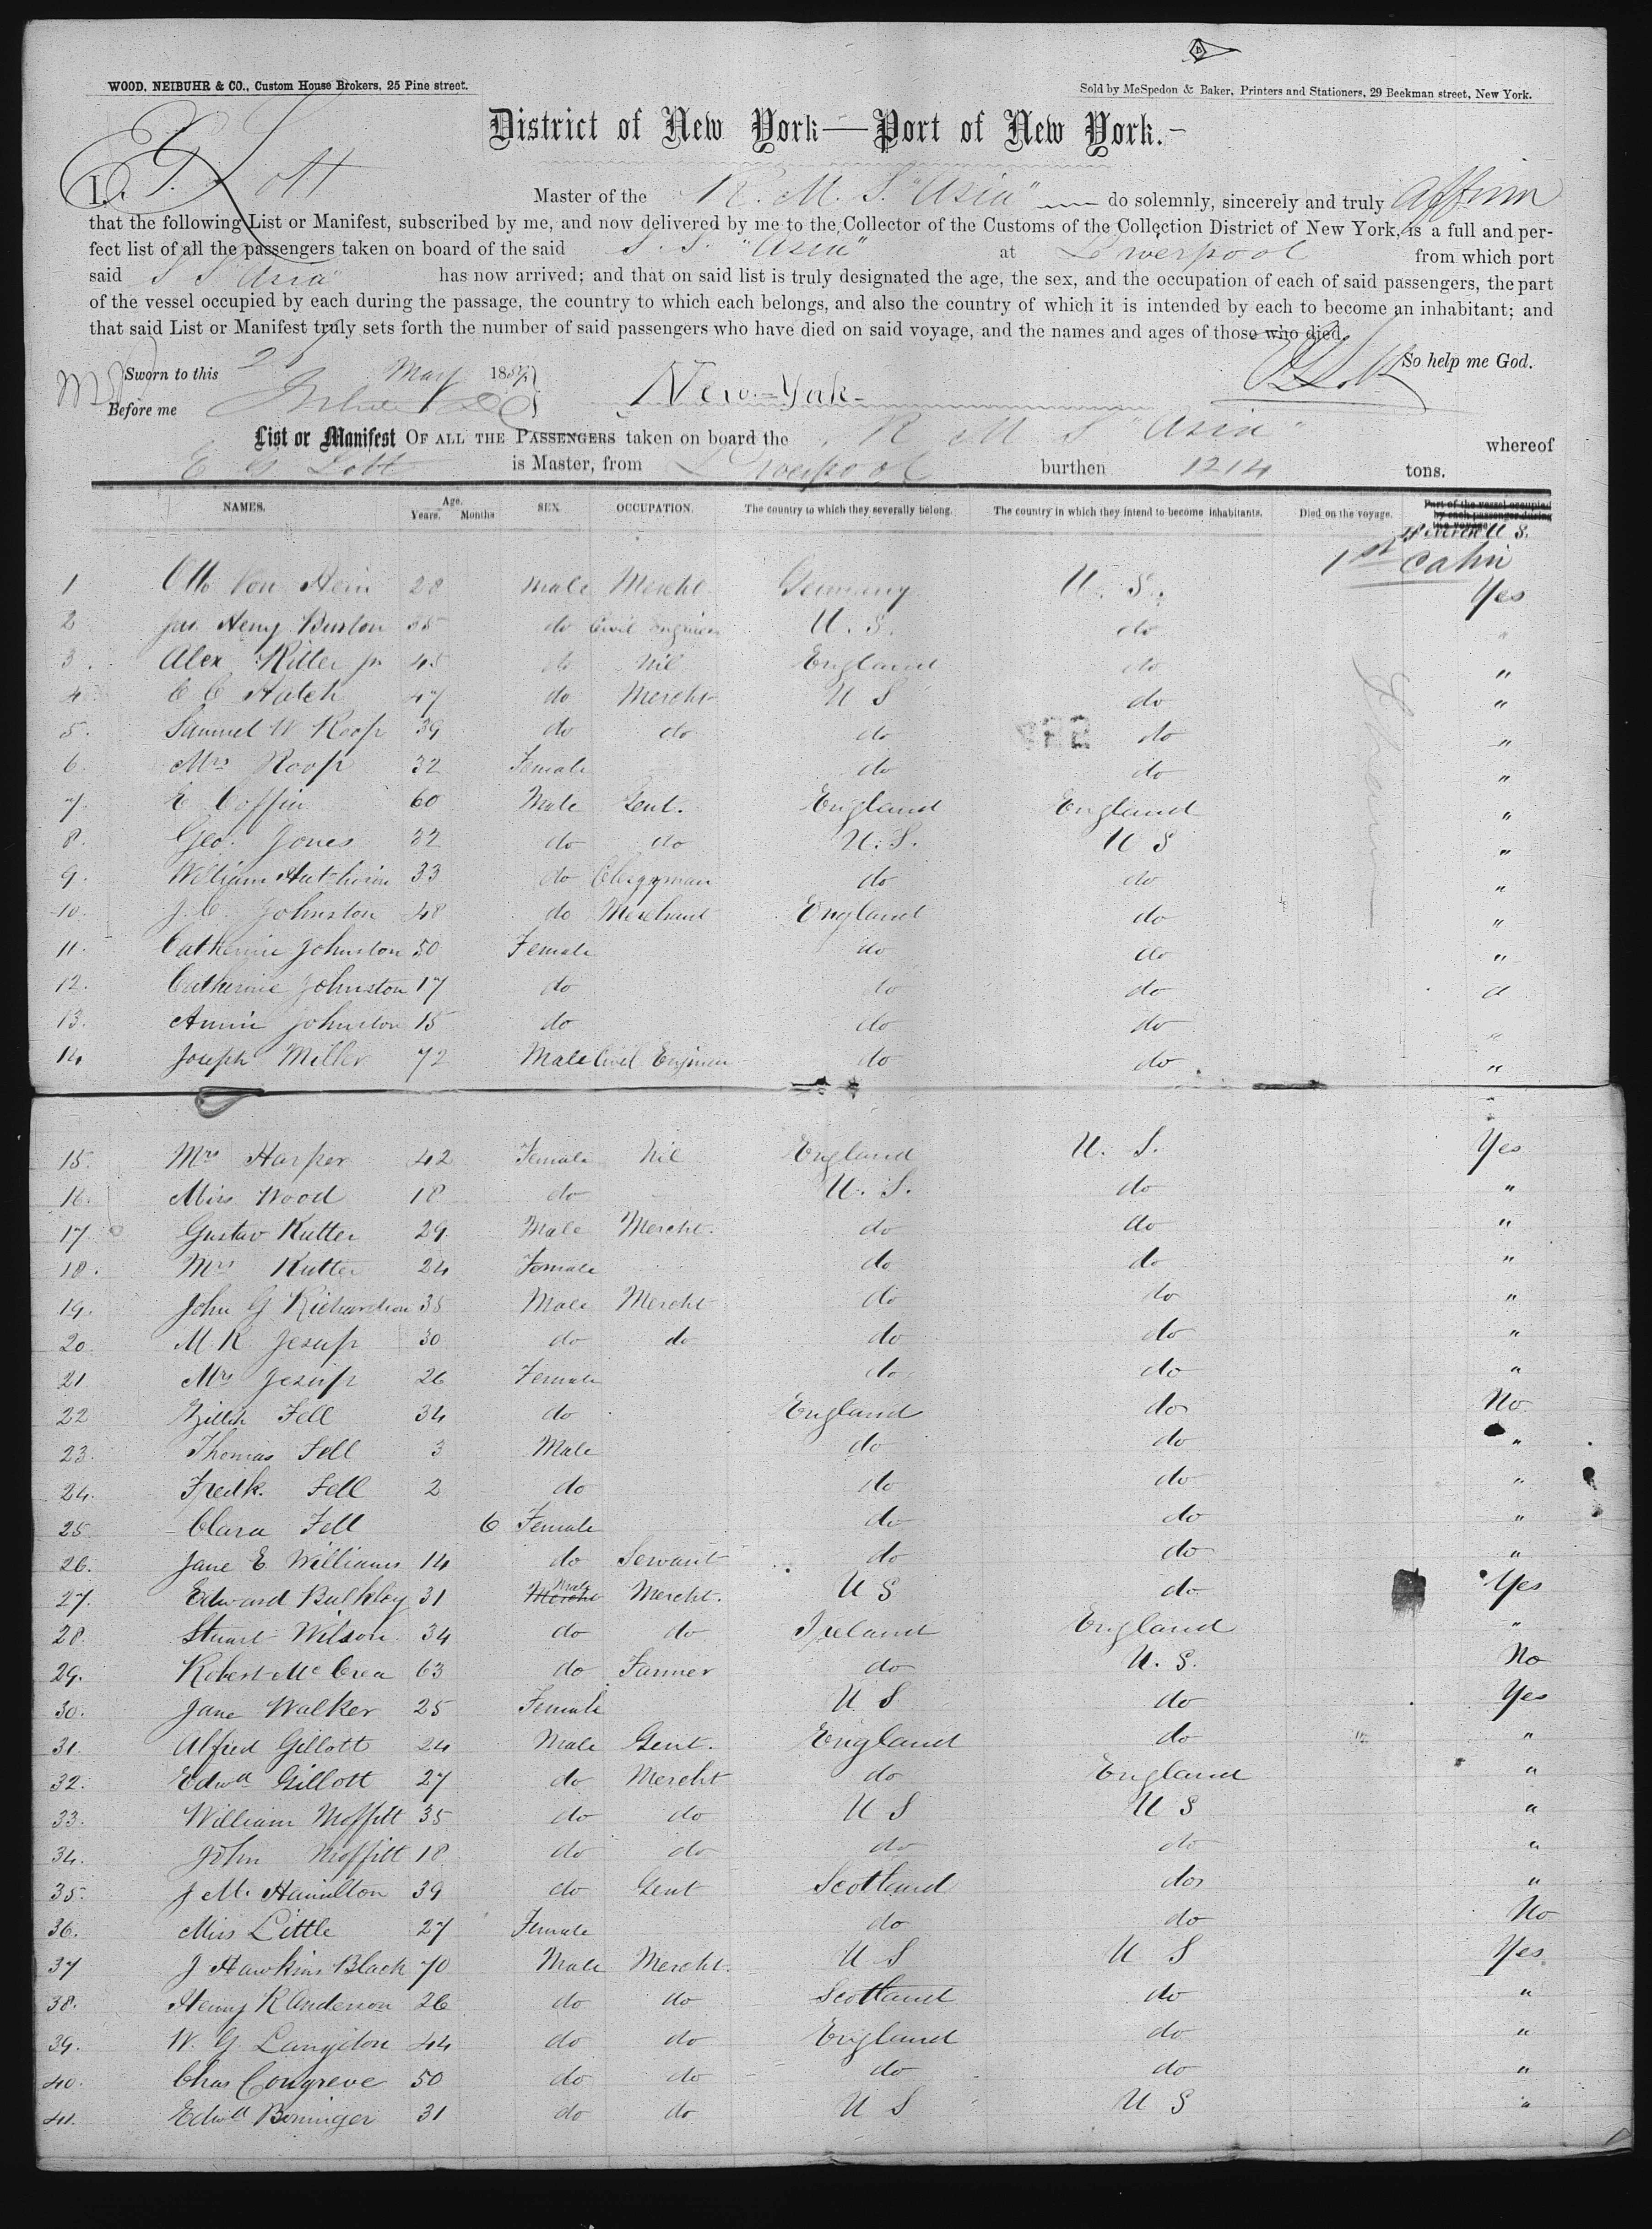 WOOD, NEIBUHR & CO., Custom House Brokers, 25 Pine street.
Sold by McSpedon & Baker, Printers and Stationers, 29 Beekman street, New York.
District of New York—Port of New York.
I, E. G. Lott Master of the R. M. S. "Asia" do solemnly, sincerely and truly affirm
that the following List or Manifest, subscribed by me, and now delivered by me to the Collector of the Customs of the Collection District of New York, is a full and per-
fect list of all the passengers taken on board of the said S. S. "Asia" at Liverpool from which port
said S S "Asia" has now arrived; and that on said list is truly designated the age, the sex, and the occupation of each of said passengers, the part
of the vessel occupied by each during the passage, the country to which each belongs, and also the country of which it is intended by each to become an inhabitant; and
that said List or Manifest truly sets forth the number of said passengers who have died on said voyage, and the names and ages of those who died.
So help me God.
Sworn to this May 185
Before me
New-York
E G Lott
List or Manifest OF ALL THE PASSENGERS taken on board the R M S "Asia" whereof
E G Lott is Master, from Liverpool burthen 1214 tons.
NAMES. Age. Years. Months SEX OCCUPATION. The country to which they severally belong. The country in which they intend to become inhabitants. Died on the voyage. Part of the vessel occupied by each passenger during the voyage
U S.
1st Cabin
1 Otto Von Hein 28 Male Mercht Germany U. S. Yes
2 Jas. Heny Burton 35 do Civil Engineer U. S. do "
3. Alex Kitter jr 45 do Nil England do "
4. C C Hatch 47 do Mercht U S do "
5. Samuel W Roop 39 do do do do "
6. Mrs Roop 32 Female do do "
7. E Coffin 60 Male Gent. England England "
8. Geo. Jones 32 do do U. S. U S "
9. William Hutchison 33 do Clergyman do do "
10. J. C. Johnston 48 do Merchant England do "
11. Catherine Johnston 50 Female do do "
12. Catherine Johnston 17 do do do "
13. Annie Johnston 15 do do do "
14 Joseph Miller 72 Male Civil Engineer do do "
15. Mrs Harper 42 Female Nil England U. S. Yes
16. Miss Wood 18 do U. S. do "
17. Gustav Kutter 29 Male Mercht. do do "
18. Mrs Kutter 24 Female do do "
19. John G Richardson 35 Male Mercht do do "
20. M. K. Jesup 30 do do do do "
21 Mrs Jesup 26 Female do do "
22 Fell 34 do England do No
23. Thomas Fell 3 Male do do "
24. Fredk. Fell 2 do do do "
25 Clara Fell 6 Female do do "
26. Jane E Williams 14 do Servant do do "
27. Edward Bulkley 31 Mercht Male Mercht. U S do Yes
28. Stuart Wilson 34 do do Ireland England "
29. Robert McCrea 63 do Farmer do U. S. No
30. Jane Walker 25 Female U S do Yes
31. Alfred Gillott 24 Male Gent. England do "
32. Edwd Gillott 27 do Mercht do England "
33. William Moffitt 35 do do U S U S "
34. John Moffitt 18 do do do do "
35. J M. Hamilton 39 do Gent Scotland do "
36. Miss Little 27 Female do do No
37 J Hawkins Black 70 Male Mercht. U S U S Yes
38. Henry R Anderson 26 do do Scotland do "
39. W. G. Langdon 44 do do England do "
40. Chas Congreve 50 do do do do "
41. Edwd Berninger 31 do do U S U S "